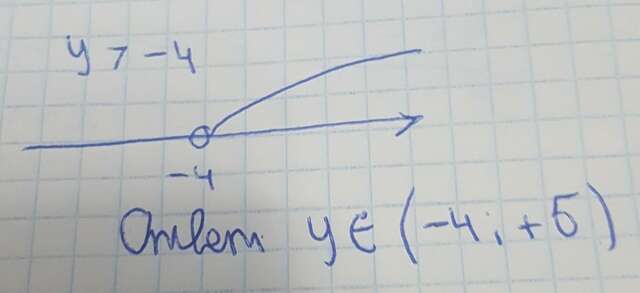 y > -4
-4
Ответ y ∈ (-4; +5)